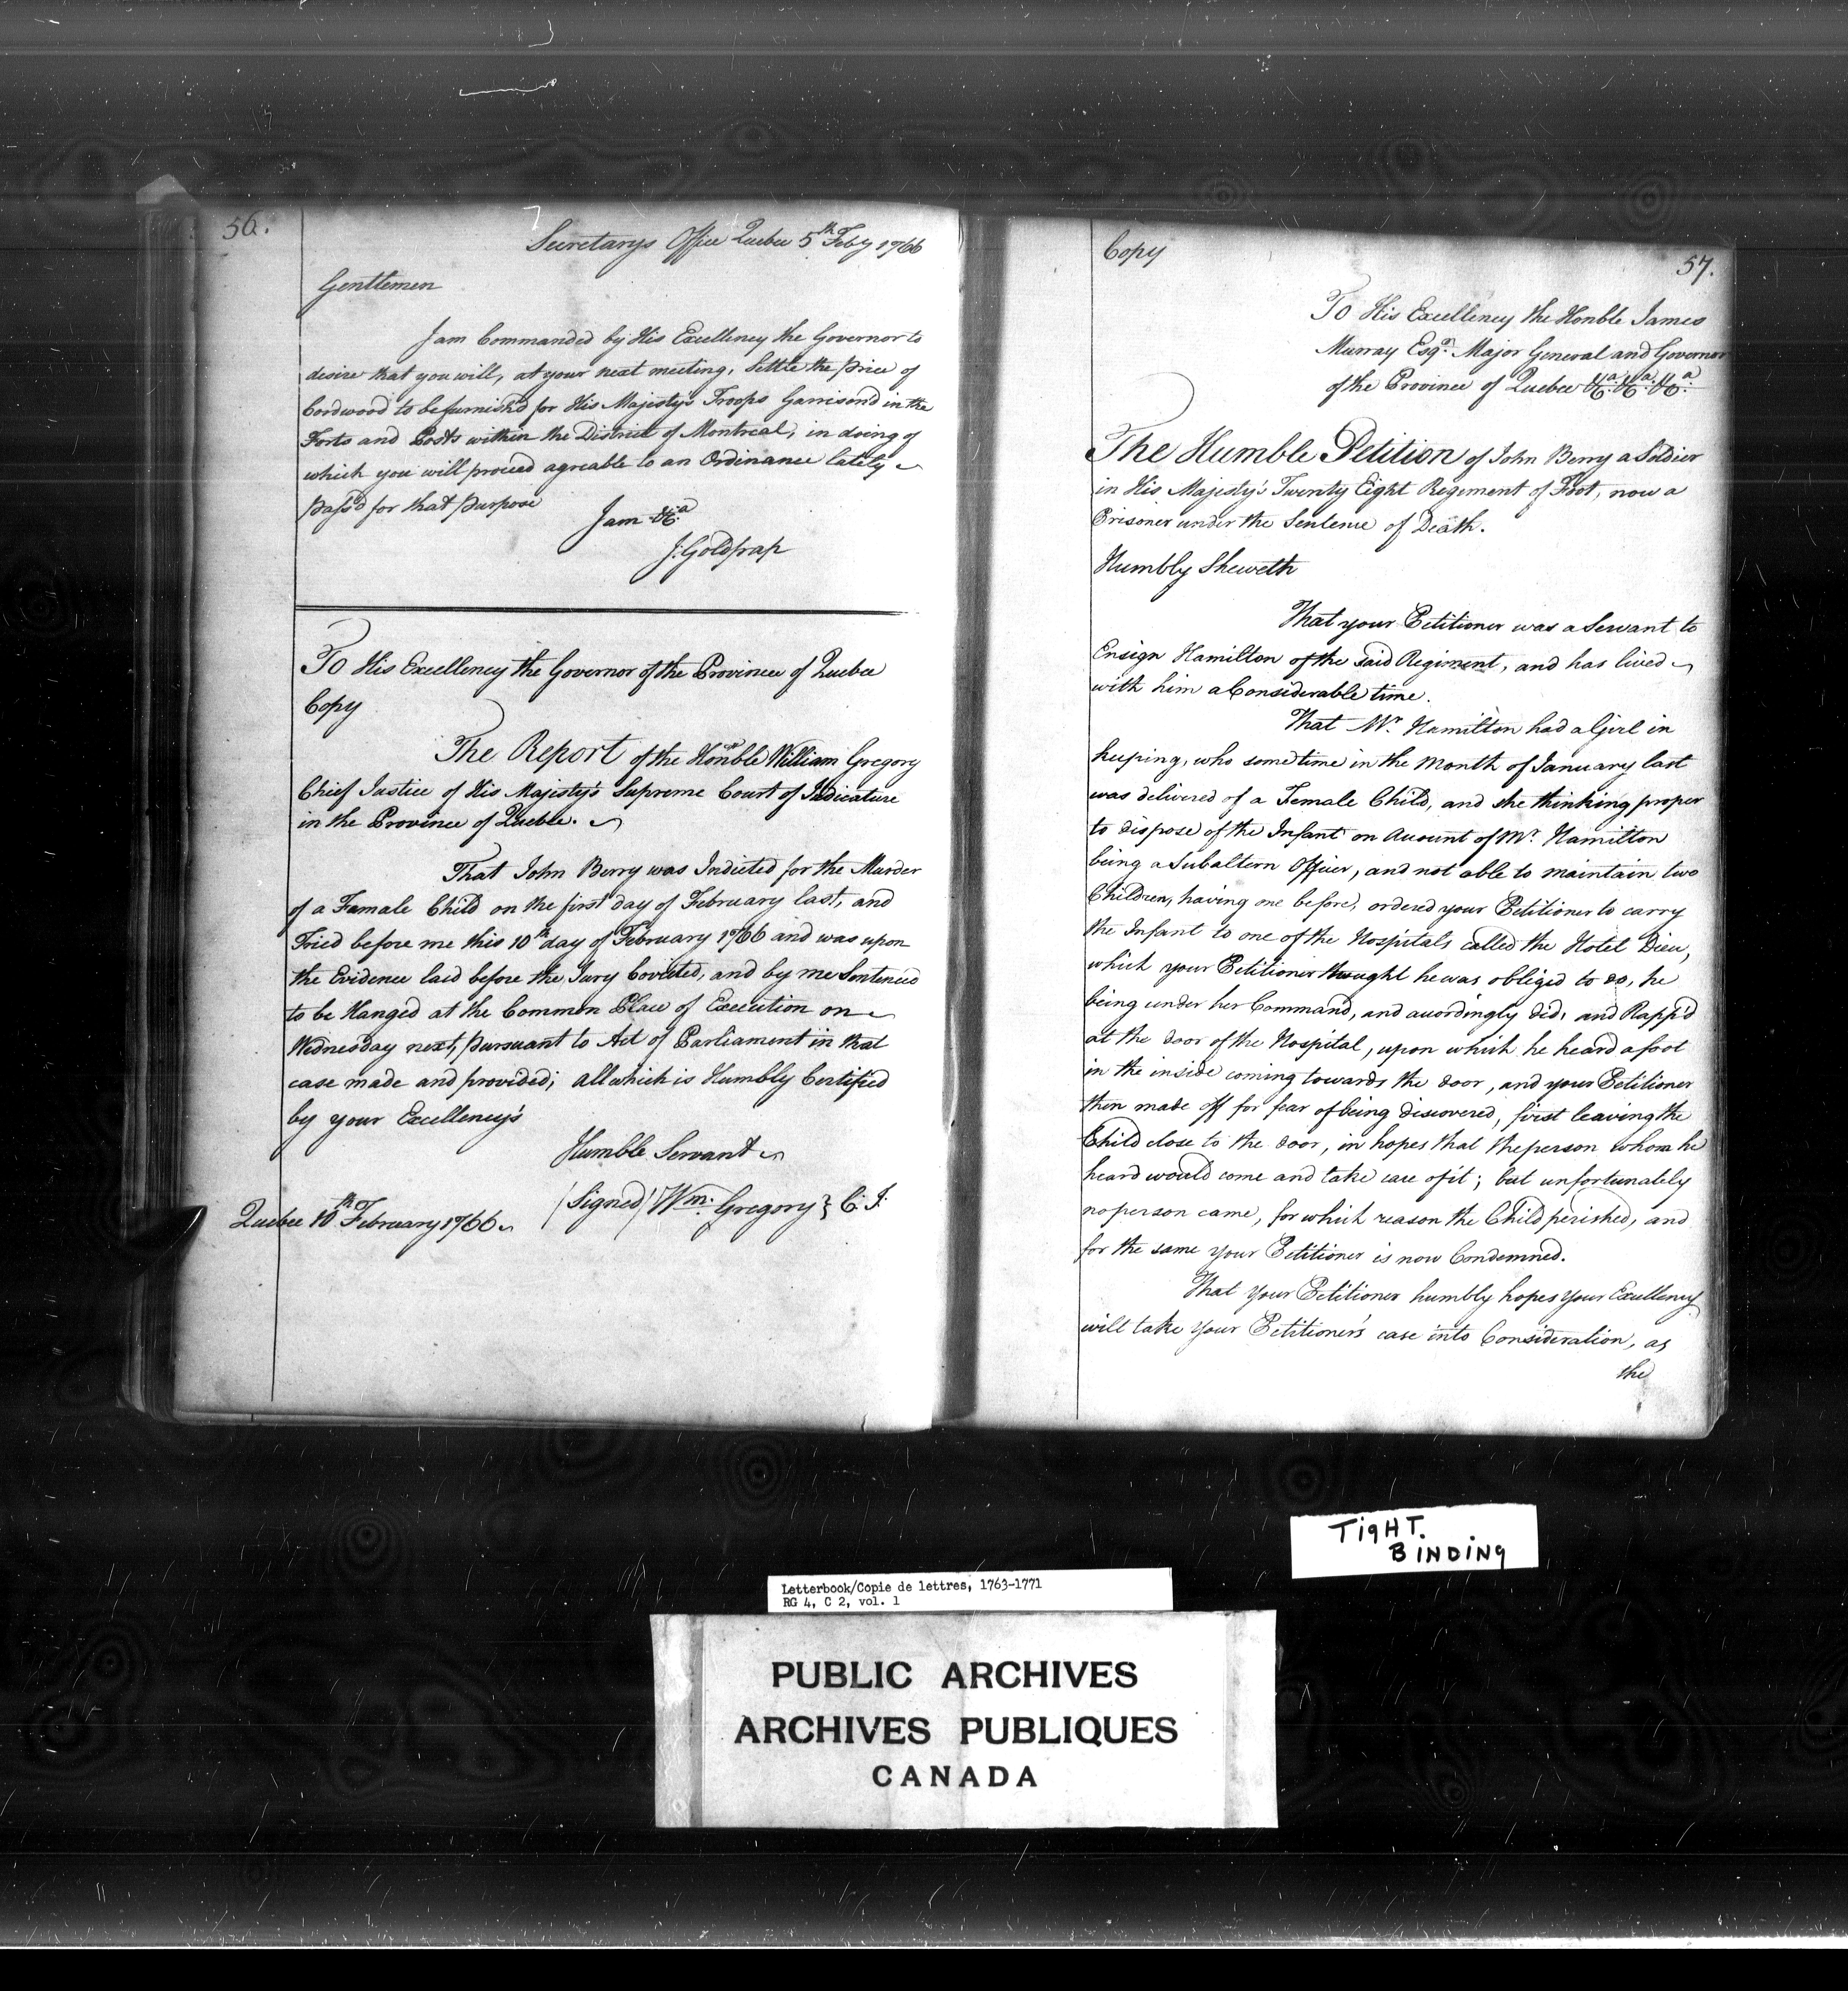 56.
Secretarys Office Quebec 5th Feby 1766
Gentlemen
I am Commanded by His Excellency the Governor to
desire that you will, at your next meeting, Settle the price of
Cordwood to be furnish'd for His Majesty's Troops Garrisond in the
Forts and Posts within the District of Montreal, in doing of
which you will proceed agreable to an Ordinance lately
pass'd for that purpose
I am &ca
J: Goldfrap
To His Excellency the Governor of the Province of Quebec
Copy
The Report of the Honble William Gregory
Chief Justice of His Majesty's Supreme Court of Judicature
in the Province of Quebec.
That John Berry was Indicted for the Murder
of a Famale Child on the first day of February last, and
Tried before me this 10th day of February 1766 and was upon
the Evidence laid before the Jury Covicted, and by me Sentenced
to be Hanged at the Common Place of Execution on
Wednesday next, pursuant to Act of Parliament in that
case made and provided; All which is Humbly Certified
by your Excellency's
Humble Servant
(Signed) Wm. Gregory } C. J.
Quebec 10th February 1766
Copy
57.
To His Excellency the Honble James
Murray Esqr. Major General and Governor
of the Province of Quebec &ca. &ca. &ca.
The Humble Petition of John Berry a Soldier
in His Majesty's Twenty Eight Regiment of Foot, now a
Prisoner under the Sentence of Death.
Humbly Sheweth
That your Petitioner was a Servant to
Ensign Hamilton of the said Regiment, and has lived
with him a Considerable time.
That Mr. Hamilton had a Girl in
keeping, who some time in the Month of January last
was delivered of a Female Child, and she thinking proper
to dispose of the Infant on Account of Mr. Hamilton
being a Subaltern Officer, and not able to maintain two
Children, having one before, ordered your Petitioner to carry
the Infant to one of the Hospitals called the Hotel Dieu,
which your Petitioner thought he was obliged to do, he
being under her Command, and accordingly did, and Rapp'd
at the door of the Hospital, upon which he heard a foot
in the inside coming towards the door, and your Petitioner
then made off for fear of being discovered, first leaving the
Child close to the door, in hopes that the person whom he
heard would come and take care of it; but unfortunately
no person came, for which reason the Child perished, and
for the same your Petitioner is now Condemned.
That your Petitioner humbly hopes your Excellency
will take your Petitioner's case into Consideration, as
the
TigHT.
BiNDiNg
Letterbook/Copie de lettres, 1763-1771
RG 4, C 2, vol. 1
PUBLIC ARCHIVES
ARCHIVES PUBLIQUES
CANADA